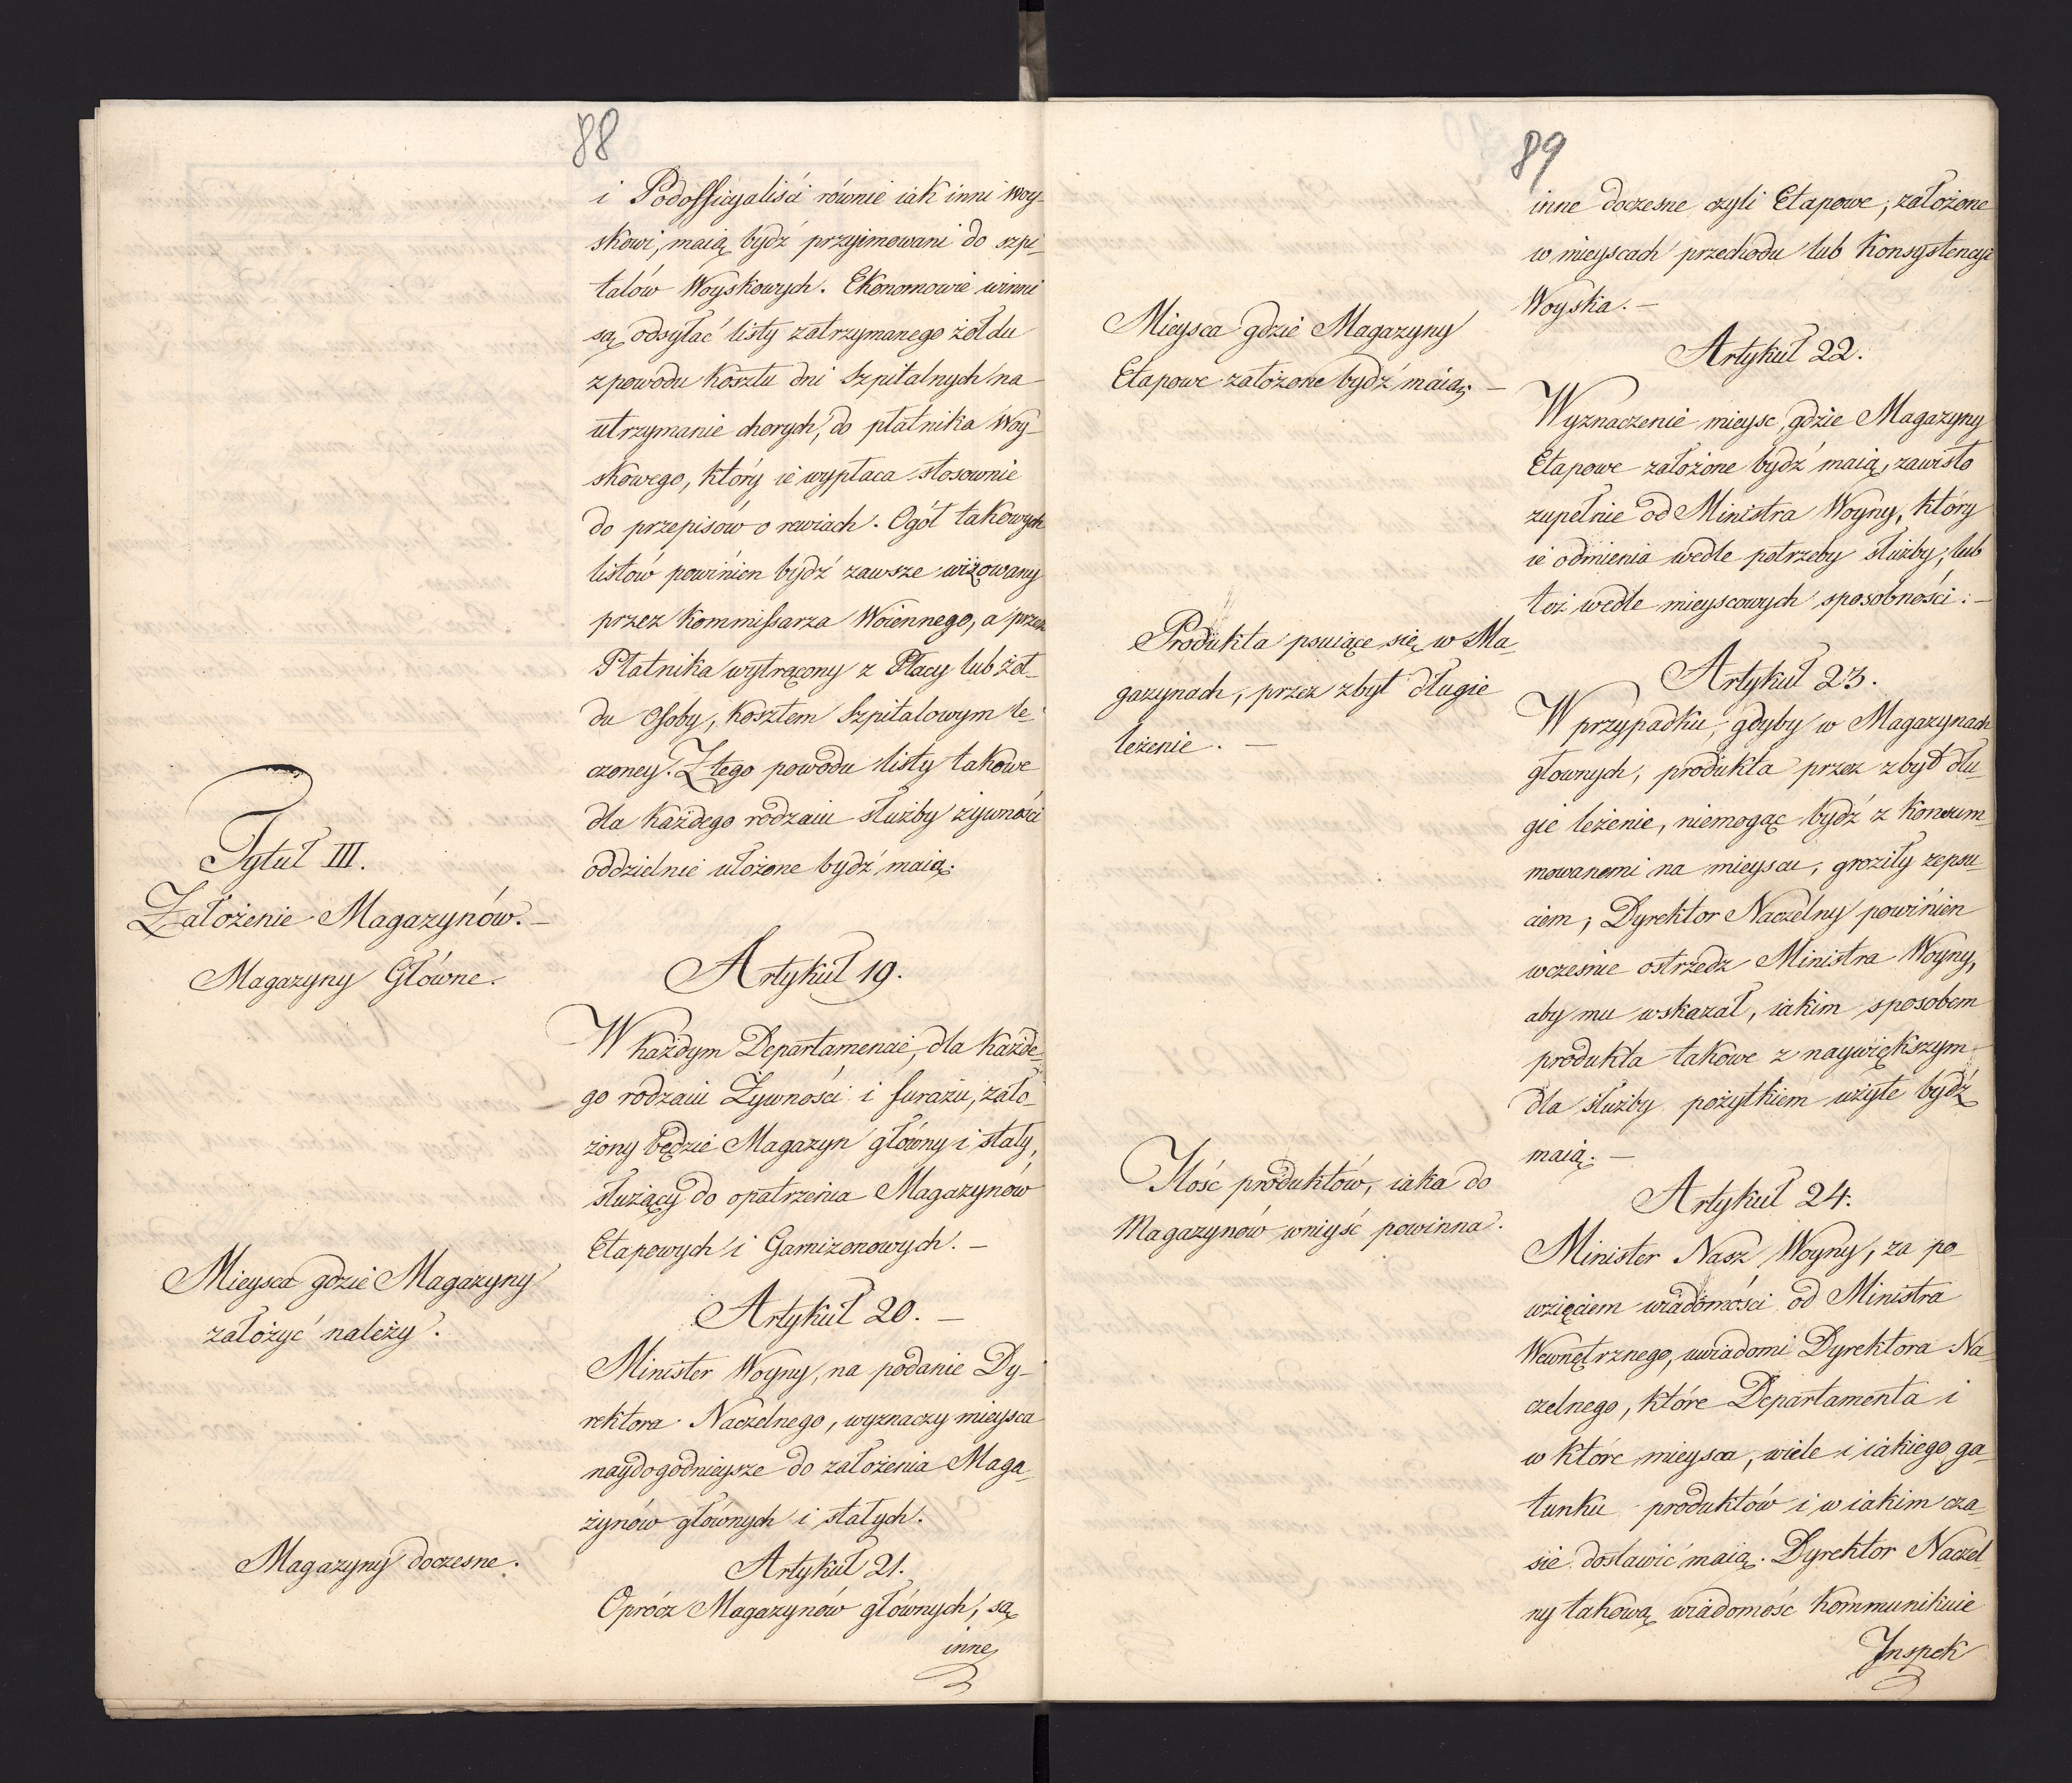 88
i Podofficyaliści równie iak inni woy-
skowi, maią bydź przyimowani do szpi-
talów Woyskowych. Ekonomowie winni
są odsyłać listy zatrzymanego żołdu
z powodu kosztu dni Szpitalnych na
utrzymanie chorych, do płatnika Woy-
skowego, który ie wypłaca stosownie
do przepisów o rewiach. Ogół takowych
listów powinien bydź zawsze wizowany
przez Kommissarza Woiennego, a przez
Płatnika wytrącony z Płacy lub żoł-
du Osoby, kosztem Szpitalowym le-
czoney. Z tego powodu listy takowe
dla każdego rodzaiu służby żywności
oddzielnie ułożone bydź maią.
Tytuł III.
Założenie Magazynów. –
Magazyny Główne.
Artykuł 19.
W każdym Departamencie, dla każde-
go rodzaiu Żywności i furażu, zało-
żony będzie Magazyn główny i stały,
służący do opatrzenia Magazynów
Etapowych i Garnizonowych. –
Mieysca gdzie Magazyny
założyć należy.
Artykuł 20. –
Minister Woyny, na podanie Dy-
rektora Naczelnego, wyznaczy mieysca
naydogodnieysze do założenia Maga-
zynów głównych i stałych.
Magazyny doczesne.
Artykuł 21.
Oprócz Magazynów głównych, są
inne
89
inne doczesne czyli Etapowe, założone
w mieyscach przechodu lub Konsystencyi
Woyska. –
Mieysca gdzie Magazyny
Etapowe założone bydź maią. –
Artykuł 22.
Wyznaczenie mieysc, gdzie Magazyny
Etapowe założone bydź maią, zawisło
zupełnie od Ministra Woyny, który
ie odmienia wedle potrzeby służby, lub
też wedle mieyscowych sposobności. –
Produkta psuiące się w Ma-
gazynach, przez zbyt długie
leżenie. –
Artykuł 23.
W przypadku, gdyby w Magazynach
głownych, produkta przez zbyt dłu-
gie leżenie, niemogąc bydź z konsum-
mowanemi na mieyscu, groziły zepsu-
ciem, Dyrektor Naczelny powinien
wcześnie ostrzedz Ministra Woyny,
aby mu wskazał, iakim sposobem
produkta takowe z naywiększym
dla służby pożytkiem użyte bydź
maią. –
Ilość produktów, iaka do
Magazynów wniyść powinna.
Artykuł 24.
Minister Nasz Woyny, za po-
wzięciem wiadomości od Ministra
Wewnętrznego, uwiadomi Dyrektora Na-
czelnego, które Departamenta i
w które mieysca, wiele i iakiego ga-
tunku produktów i w iakim cza-
sie dostawić maią. Dyrektor Naczel-
ny takową wiadomość kommunikuie
Inspek